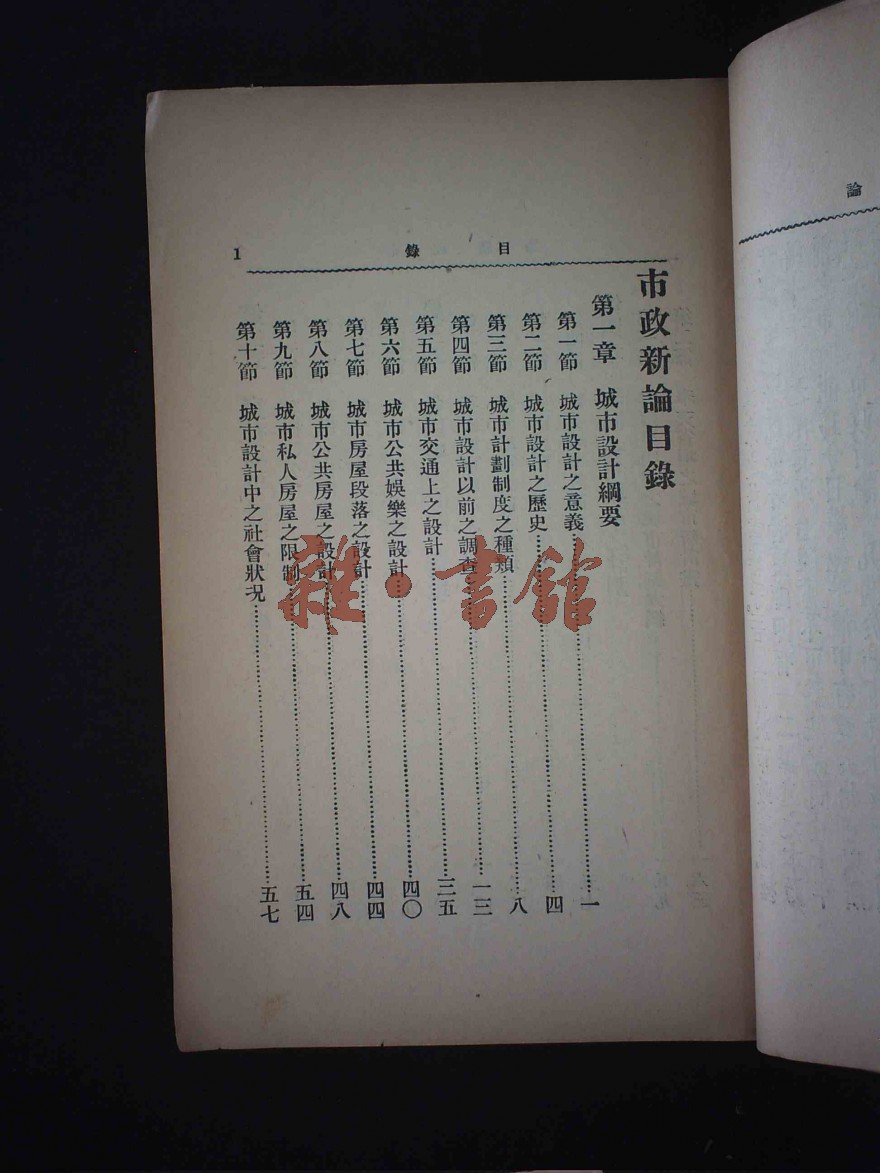 目錄
1
市政新論目錄
第一章 城市設計綱要
第一節 城市設計之意義……一
第二節 城市設計之歷史……四
第三節 城市計劃制度之種類……八
第四節 城市設計以前之調查……一三
第五節 城市交通上之設計……三五
第六節 城市公共娛樂之設計……四〇
第七節 城市房屋段落之設計……四四
第八節 城市公共房屋之設計……四八
第九節 城市私人房屋之限制……五四
第十節 城市設計中之社會狀况……五七
論
雜·書館